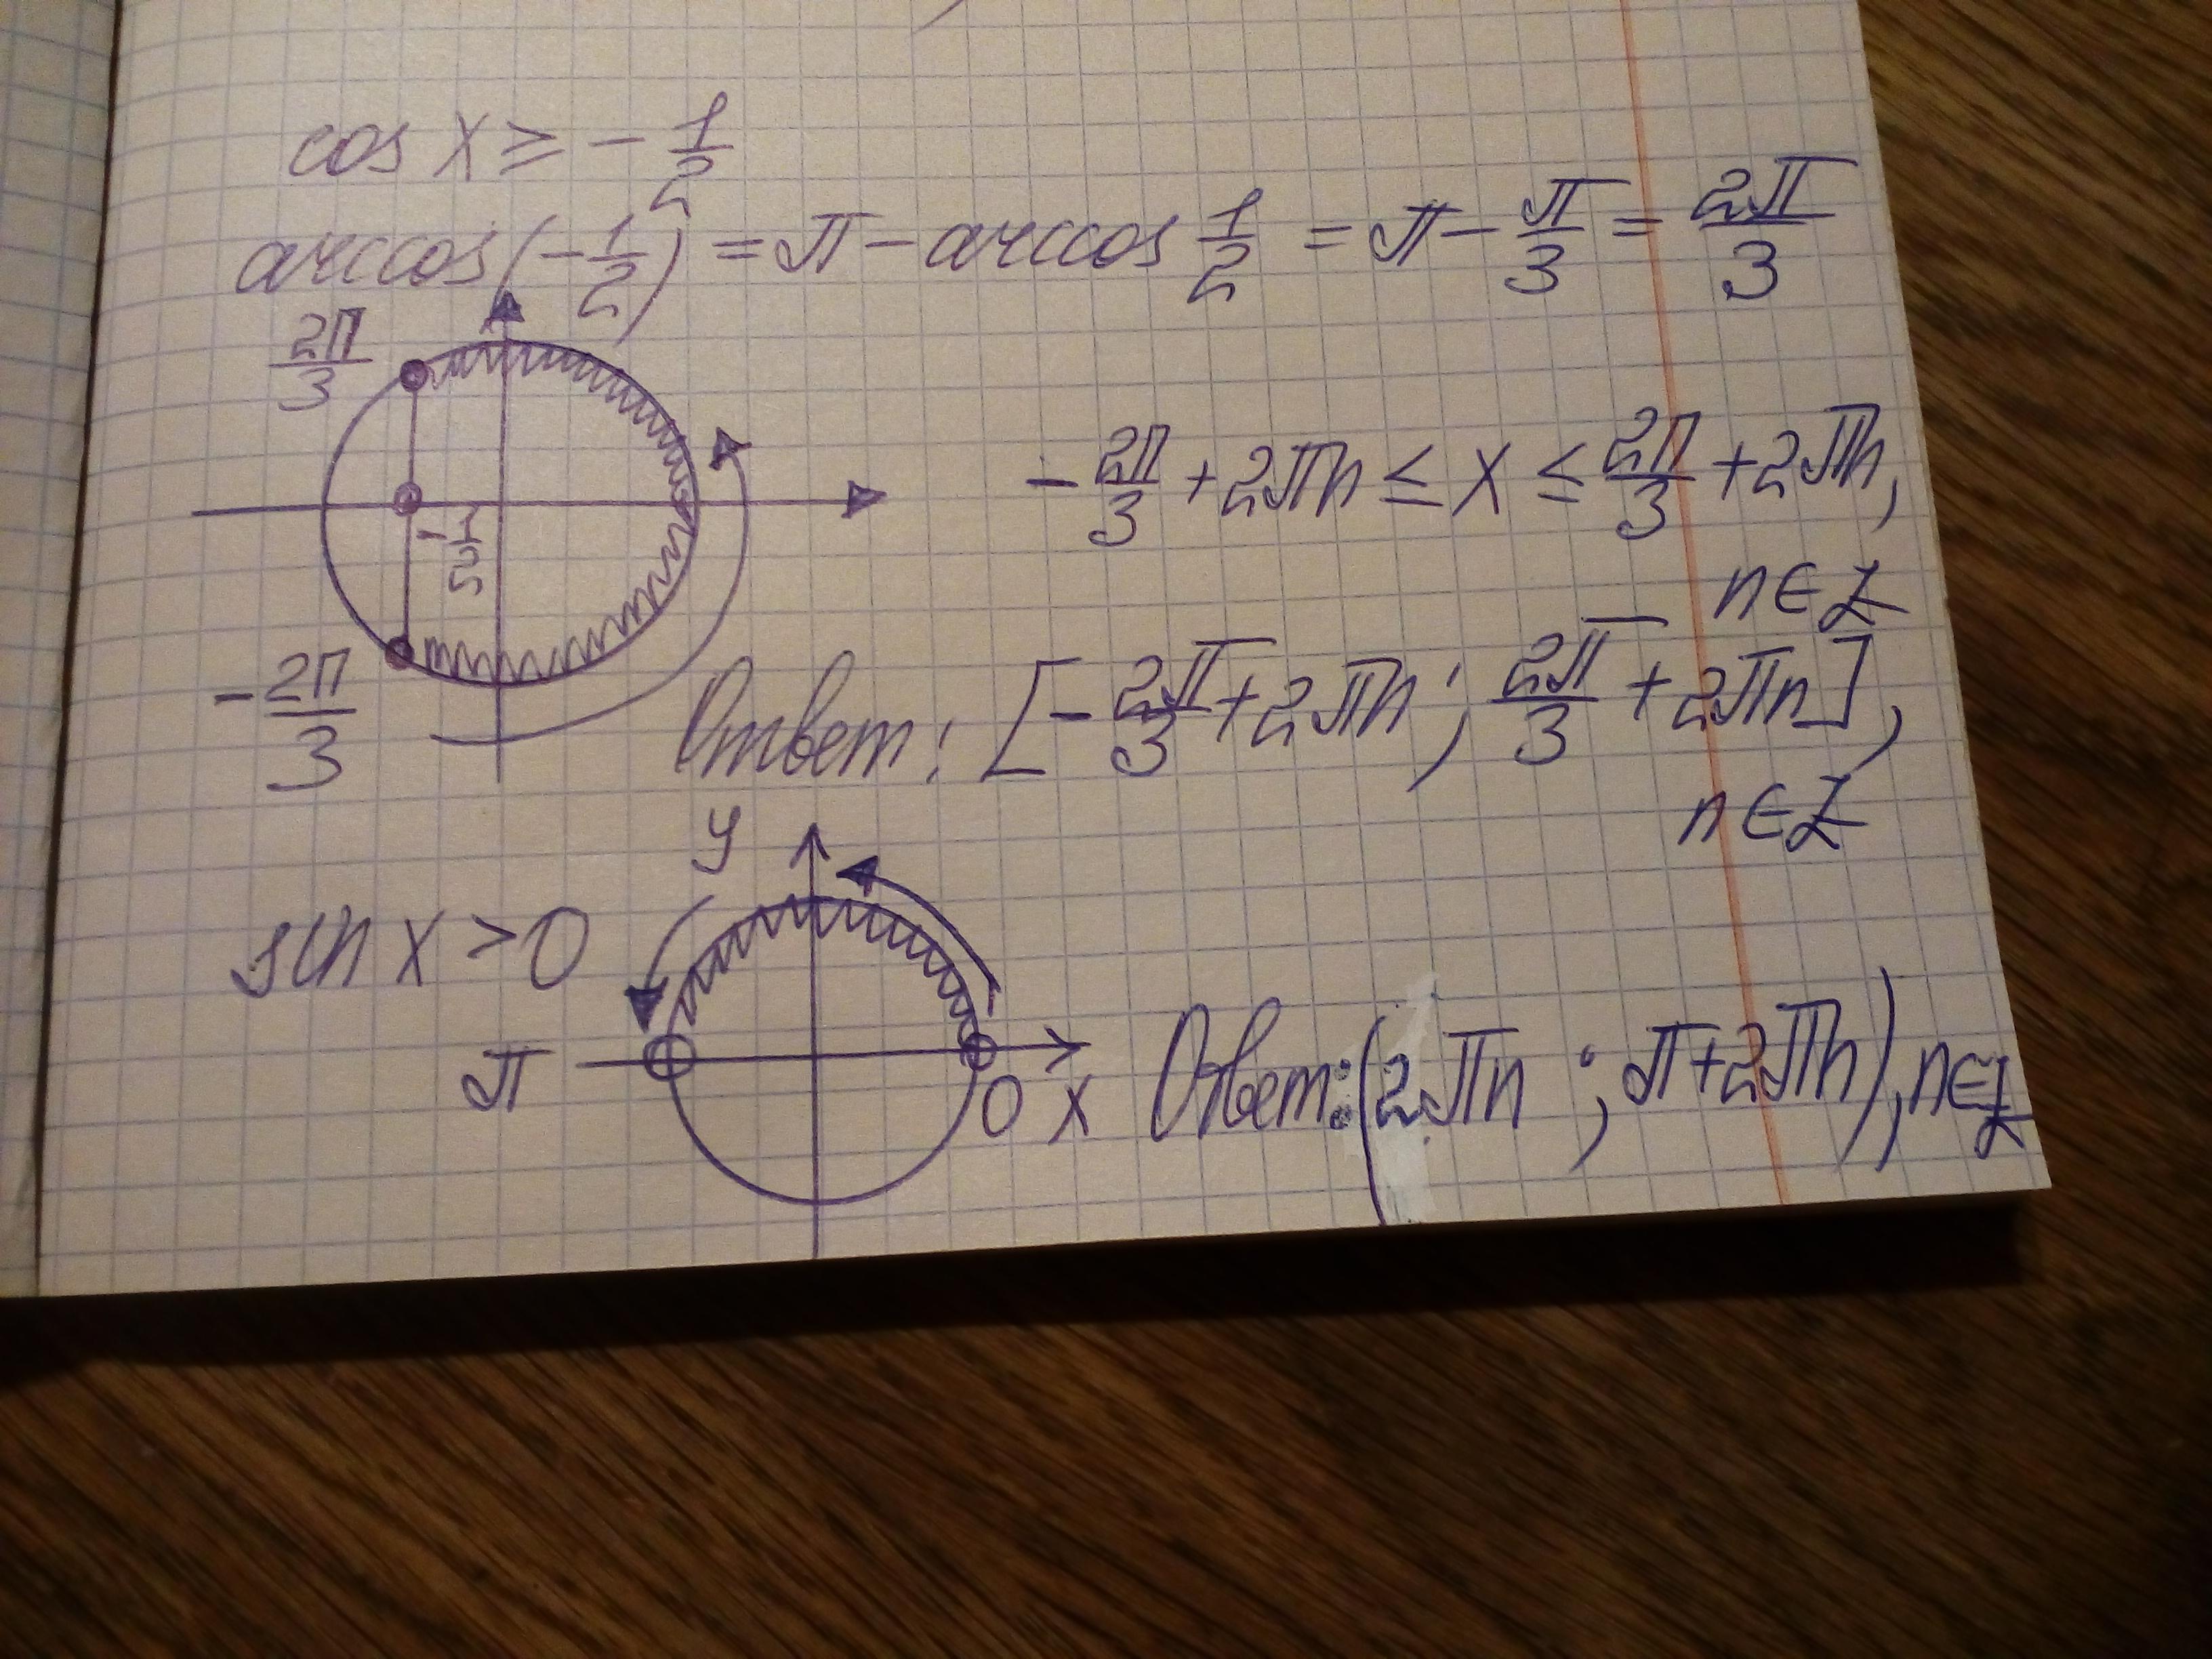 cos x ≥ - 1/2
arccos(-1/2) = π - arccos 1/2 = π - π/3 = 2π/3
2π/3
-1/2
-2π/3
-2π/3 + 2πn ≤ x ≤ 2π/3 + 2πn,
n ∈ Z
Ответ: [-2π/3 + 2πn; 2π/3 + 2πn],
n ∈ Z
y
sin x > 0
π
0 x
Ответ: (2πn; π + 2πn), n ∈ Z